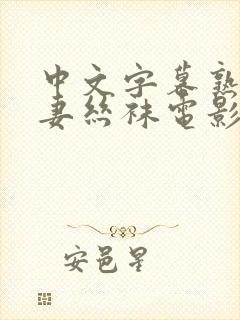 中文字幕熟
妻丝袜电影
安邑星